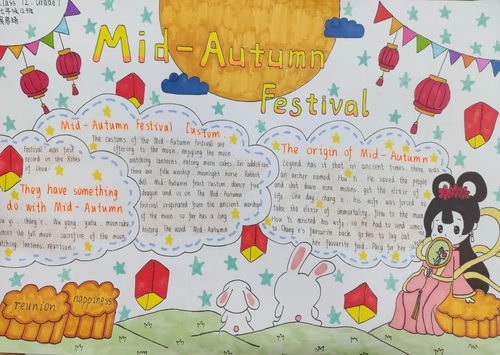 Class 12, Grade 1
Mid-Autumn
Festival
Mid-Autumn Festival Custom
The customs of the Mid-Autumn Festival are
offering to the moon, enjoying the moon,
watching lanterns, eating moon cakes. In addition
there are folk worship moonlight horse, Rabbit
God, Mid-Autumn feast custom, dance fire
dragon and so on. The Mid-Autumn
Festival originated from the ancient worship
of the moon so far has a long
history the word "Mid-Autumn
Festival was first
record in the Rites
of Zhou.
They have something
do with Mid-Autumn
Wu yi, Chang'e, Wu gang, yutu, mooncake
the full moon, sacrifice of the moon
watching lanterns, reunion.
The origin of Mid-Autumn
Legend has it that in ancient times, there was
an archer named How Yi. He saved the people
and shot down nine moons, get the elixir of
life. One day chang's, his wife was forced to
take the elixir of immortality flew to the moon
How Yi missed his wife, so he had to send someone
Chang e's favourite back garden to lay out
her favourite food. Pray for her safety
reunion
happiness